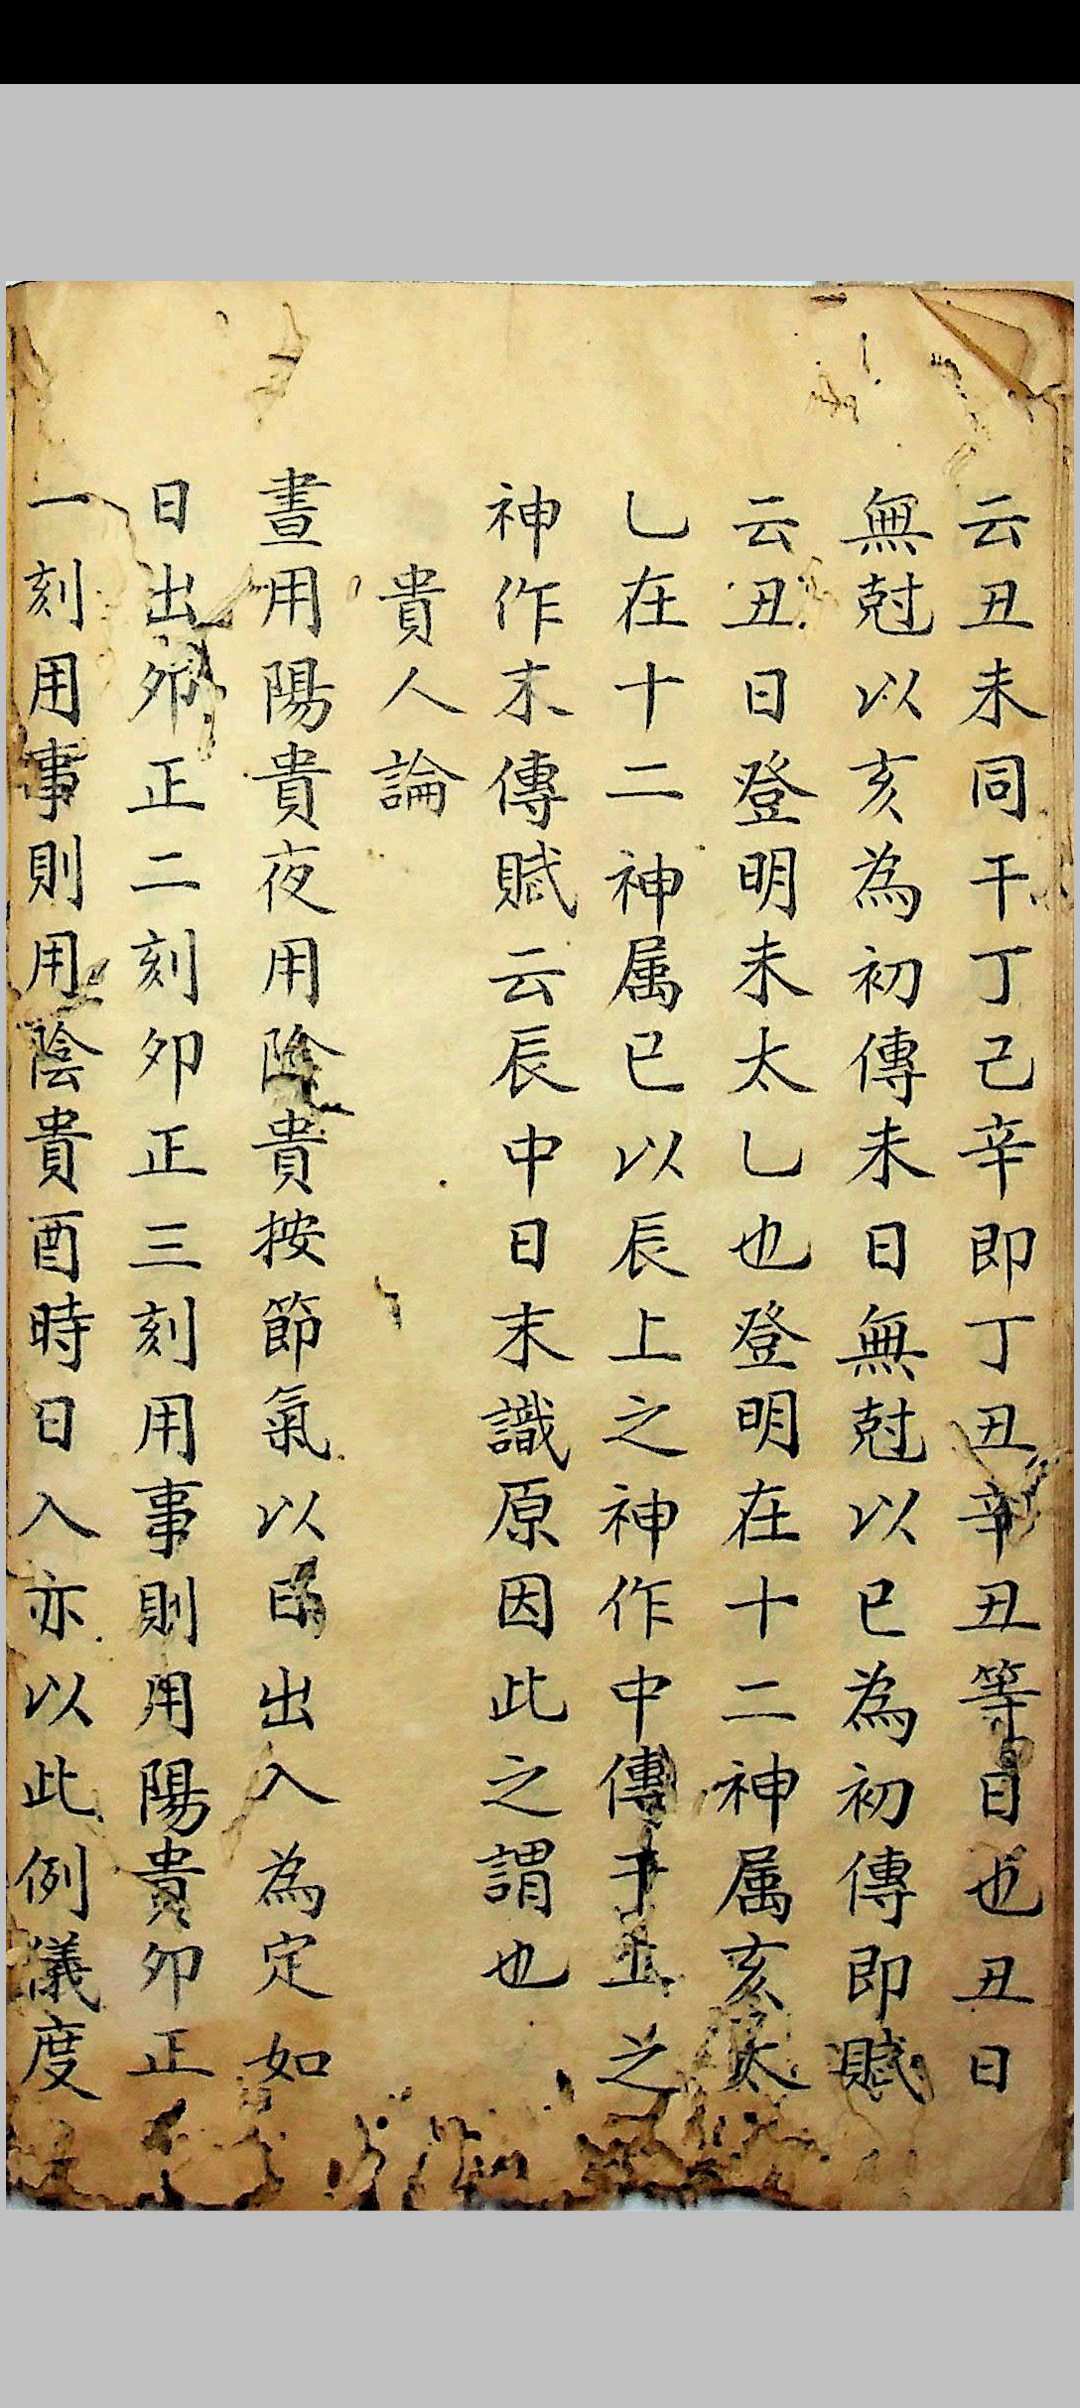 云丑未同干丁己辛即丁丑辛丑等日也丑日
無尅以亥為初傳未日無尅以巳為初傳即賦
云丑日登明未太乚也登明在十二神属亥太
乚在十二神属巳以辰上之神作中傳于上之
神作末傳賦云辰中日末識原因此之謂也
貴人論
晝用陽貴夜用陰貴按節氣以日出入為定如
日出夘正二刻夘正三刻用事則用陽貴夘正
一刻用事則用陰貴酉時日入亦以此例儀度